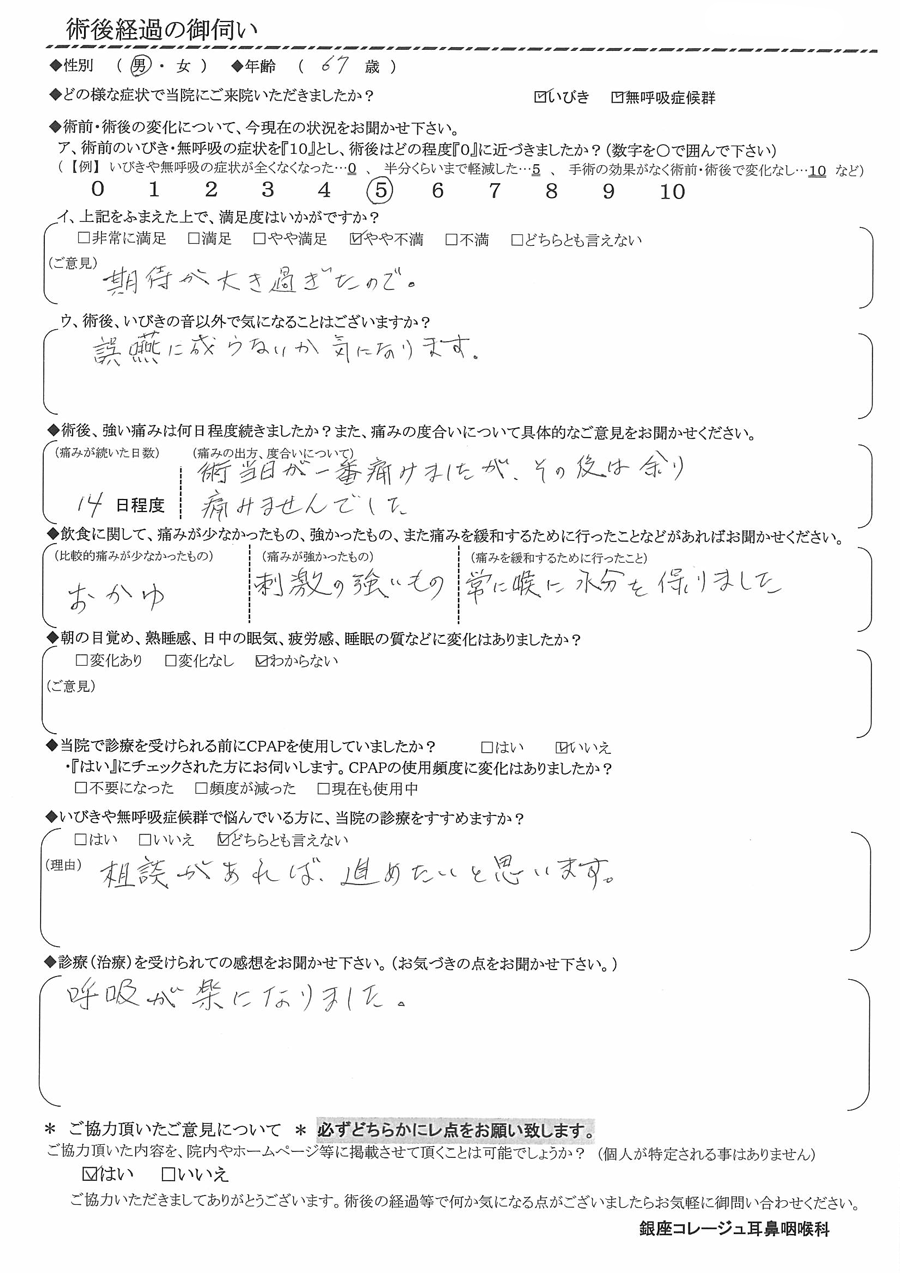 術後経過の御伺い
◆性別 （ 男 ・ 女 ） ◆年齢 （ 67 歳 ）
◆どの様な症状で当院にご来院いただきましたか？ ☑いびき ☑無呼吸症候群
◆術前・術後の変化について、今現在の状況をお聞かせ下さい。
ア、術前のいびき・無呼吸の症状を『10』とし、術後はどの程度『0』に近づきましたか？（数字を〇で囲んで下さい）
（【例】 いびきや無呼吸の症状が全くなくなった…0 、 半分くらいまで軽減した…5 、 手術の効果がなく術前・術後で変化なし…10 など）
0 1 2 3 4 5 6 7 8 9 10
イ、上記をふまえた上で、満足度はいかがですか？
□非常に満足 □満足 □やや満足 ☑やや不満 □不満 □どちらとも言えない
（ご意見）
期待が大き過ぎたので。
ウ、術後、いびきの音以外で気になることはございますか？
誤嚥に成らないか気になります。
◆術後、強い痛みは何日程度続きましたか？また、痛みの度合いについて具体的なご意見をお聞かせください。
（痛みが続いた日数） （痛みの出方、度合いについて）
術当日が一番痛みましたが、その後は余り
14 日程度 痛みませんでした
◆飲食に関して、痛みが少なかったもの、強かったもの、また痛みを緩和するために行ったことなどがあればお聞かせください。
（比較的痛みが少なかったもの） （痛みが強かったもの） （痛みを緩和するために行ったこと）
おかゆ 刺激の強いもの 常に喉に水分を保りました
◆朝の目覚め、熟睡感、日中の眠気、疲労感、睡眠の質などに変化はありましたか？
□変化あり □変化なし ☑わからない
（ご意見）
◆当院で診療を受けられる前にCPAPを使用していましたか？ □はい ☑いいえ
・『はい』にチェックされた方にお伺いします。CPAPの使用頻度に変化はありましたか？
□不要になった □頻度が減った □現在も使用中
◆いびきや無呼吸症候群で悩んでいる方に、当院の診療をすすめますか？
□はい □いいえ ☑どちらとも言えない
（理由）
相談があれば、進めたいと思います。
◆診療（治療）を受けられての感想をお聞かせ下さい。（お気づきの点をお聞かせ下さい。）
呼吸が楽になりました。
＊ ご協力頂いたご意見について ＊ 必ずどちらかにレ点をお願い致します。
ご協力頂いた内容を、院内やホームページ等に掲載させて頂くことは可能でしょうか？ （個人が特定される事はありません）
☑はい □いいえ
ご協力いただきましてありがとうございます。術後の経過等で何か気になる点がございましたらお気軽に御問い合わせください。
銀座コレージュ耳鼻咽喉科